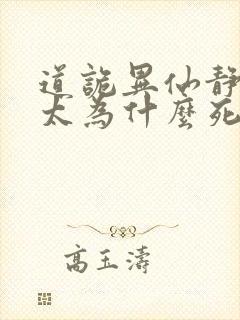 道詭異仙靜
太為什麼死
高玉濤